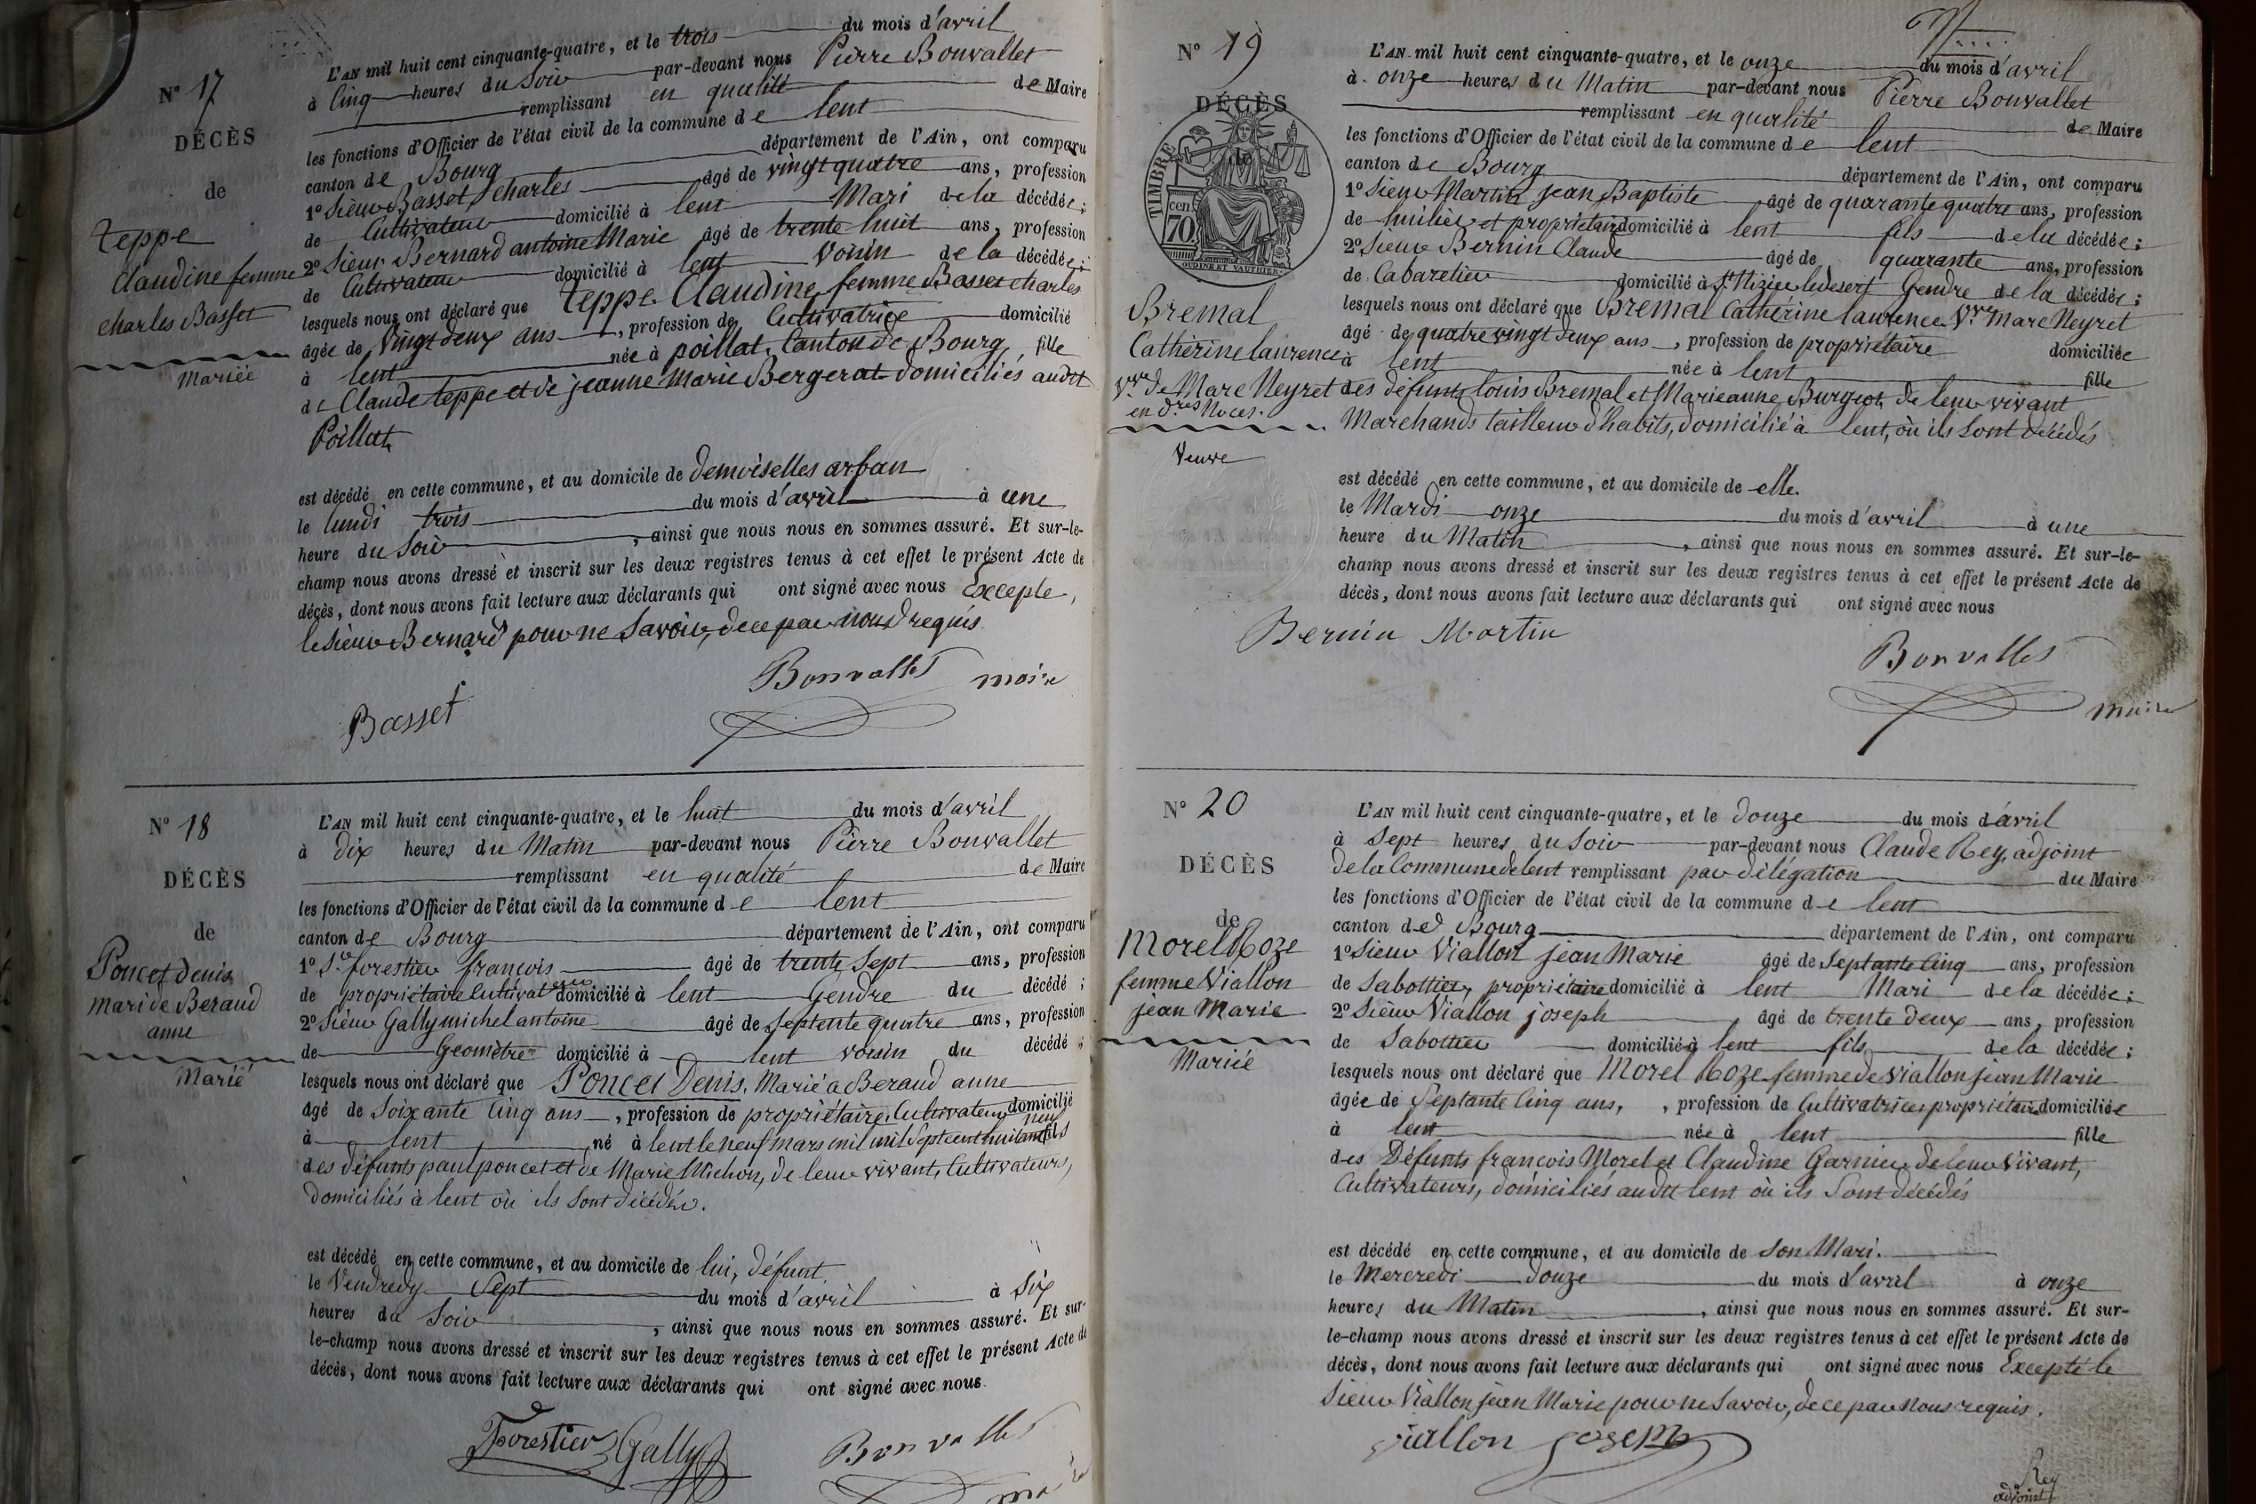 N° 17
DÉCÈS
de
teppe
Claudine femme
charles Basset
Mariée
L'AN mil huit cent cinquante-quatre, et le trois du mois d'avril
à Cinq heures du Soir par-devant nous Pierre Bonvallet
remplissant en qualité de Maire
les fonctions d'Officier de l'état civil de la commune de lent
canton de Bourg département de l'Ain, ont comparu
1° Sieur Basset charles âgé de vingt quatre ans, profession
de Cultivateur domicilié à lent Mari de la décédée;
2° Sieur Bernard antoine Marie âgé de trente huit ans, profession
de Cultivateur domicilié à lent Voisin de la décédée;
lesquels nous ont déclaré que teppe Claudine femme Basset charles
âgée de Vingt deux ans, profession de Cultivatrice domicilié
à lent née à poillat, Canton de Bourg, fille
de Claude teppe et de jeanne Marie Bergerat domiciliés audit
Poillat
est décédé en cette commune, et au domicile de demoiselles arban
le lundi trois du mois d'avril à une
heure du Soir, ainsi que nous nous en sommes assuré. Et sur-le-
champ nous avons dressé et inscrit sur les deux registres tenus à cet effet le présent Acte de
décès, dont nous avons fait lecture aux déclarants qui ont signé avec nous Excepte,
le Sieur Bernard pour ne Savoir, de ce par nous requis
Bonvallet maire
Basset
N° 18
DÉCÈS
de
Poncet denis
mari de Beraud
anne
Marié
L'AN mil huit cent cinquante-quatre, et le huit du mois d'avril
à Dix heures du Matin par-devant nous Pierre Bonvallet
remplissant en qualité de Maire
les fonctions d'Officier de l'état civil de la commune de lent
canton de Bourg département de l'Ain, ont comparu
1° Sr forestier françois âgé de trente Sept ans, profession
de propriétaire Cultivateur domicilié à lent Gendre du décédé;
2° Sieur Gally michel antoine âgé de Septente quatre ans, profession
de Geomètre domicilié à lent voisin du décédé;
lesquels nous ont déclaré que Poncet Denis, Marié a Beraud anne
âgé de Soixante Cinq ans, profession de propriétaire Cultivateur domicilié
à lent, né à lent le neuf mars mil mil Sept cent huitante neuf fils
des défunts paul poncet et de Marie Michon, de leur vivant, Cultivateurs,
domiciliés à lent où ils sont décédés.
est décédé en cette commune, et au domicile de lui, défunt
le Vendredy Sept du mois d'avril à Six
heures du Soir, ainsi que nous nous en sommes assuré. Et sur-
le-champ nous avons dressé et inscrit sur les deux registres tenus à cet effet le présent Acte de
décès, dont nous avons fait lecture aux déclarants qui ont signé avec nous
Forestier Gally Bonvallet
N° 19
DÉCÈS
de
TIMBRE
70 cen
OUDINE ET VAUTHIER
Bremal
Cathèrine laurence
Vve de Marc Neyret
en dres Noces.
Veuve
L'AN mil huit cent cinquante-quatre, et le onze du mois d'avril
à onze heures du Matin par-devant nous Pierre Bonvallet
remplissant en qualité de Maire
les fonctions d'Officier de l'état civil de la commune de lent
canton de Bourg département de l'Ain, ont comparu
1° Sieur Martin jean Baptiste âgé de quarante quatre ans, profession
de huilier et propriétaire domicilié à lent fils de la décédée;
2° Sieur Bernin Claude âgé de quarante ans, profession
de Cabaretier domicilié à St Nizier le desert Gendre de la décédée;
lesquels nous ont déclaré que Bremal Cathérine laurence Vve Marc Neyret
âgé de quatre vingt deux ans, profession de propriétaire domiciliée
à lent née à lent fille
des défunts louis Bremal et Marieanne Burgeot, de leur vivant
Marchands tailleur d'habits, domicilié à lent, où ils sont décédés
est décédé en cette commune, et au domicile de elle.
le Mardi onze du mois d'avril à une
heure du Matin, ainsi que nous nous en sommes assuré. Et sur-le-
champ nous avons dressé et inscrit sur les deux registres tenus à cet effet le présent Acte de
décès, dont nous avons fait lecture aux déclarants qui ont signé avec nous
Bernin Martin
Bonvallet
maire
N° 20
DÉCÈS
de
Morel Roze
femme Viallon
jean Marie
Mariée
L'AN mil huit cent cinquante-quatre, et le douze du mois d'avril
à Sept heures du Soir par-devant nous Claude Rey, adjoint
de la Commune de lent remplissant par délégation du Maire
les fonctions d'Officier de l'état civil de la commune de lent
canton de Bourg département de l'Ain, ont comparu
1° Sieur Viallon jean Marie âgé de Septante Cinq ans, profession
de Sabottier, propriétaire domicilié à lent Mari de la décédée;
2° Sieur Viallon joseph, âgé de trente deux ans, profession
de Sabottier domicilié à lent fils de la décédée;
lesquels nous ont déclaré que Morel Roze femme de Viallon jean Marie
âgée de Septante Cinq ans, profession de Cultivatrice propriétaire domiciliée
à lent née à lent fille
des Défunts francois Morel et Claudine Garnier de leur Vivant,
Cultivateurs, domiciliés audit lent où ils Sont décédés
est décédé en cette commune, et au domicile de Son Mari.
le Mercredi douze du mois d'avril à onze
heures du Matin, ainsi que nous nous en sommes assuré. Et sur-
le-champ nous avons dressé et inscrit sur les deux registres tenus à cet effet le présent Acte de
décès, dont nous avons fait lecture aux déclarants qui ont signé avec nous Excepté le
Sieur Viallon jean Marie pour ne Savoir, de ce par Nous requis.
viallon joseph
Rey
adjoint